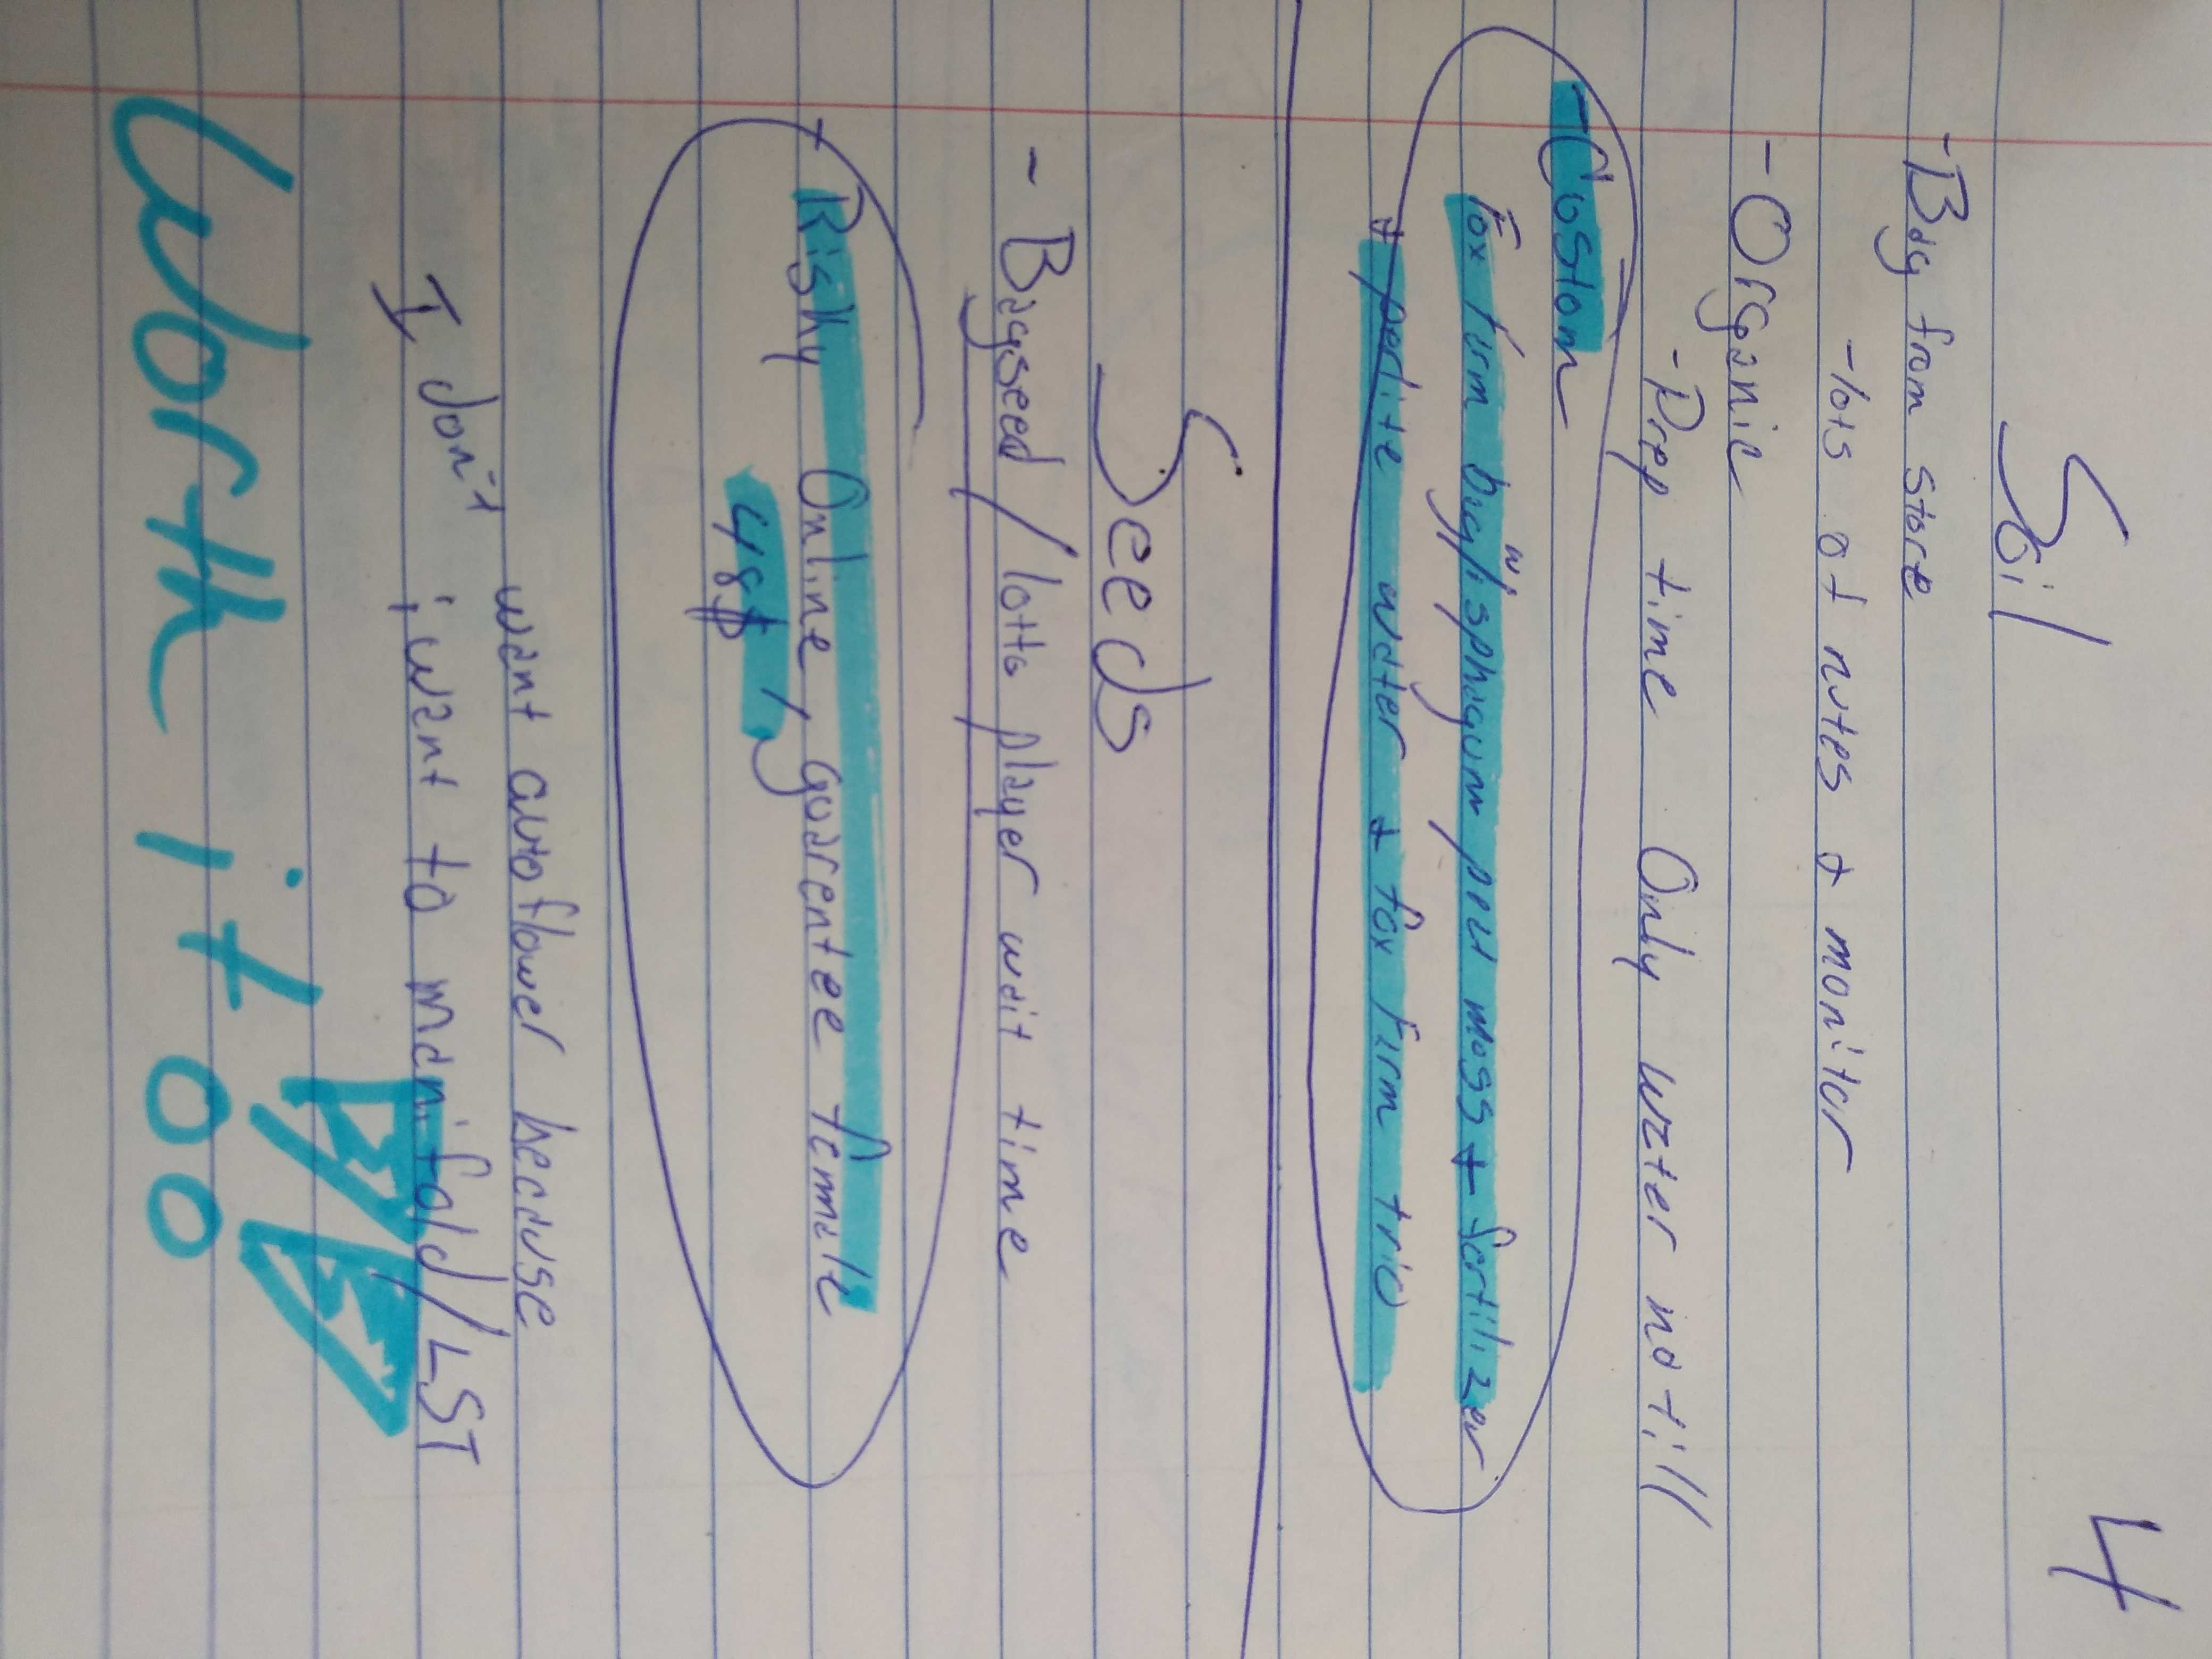 4
Soil
-Bag from store
-lots of nutes + monitor
-Organic
-Prep time Only water no till
-Costom
Fox farm bag w/ sphagum peat moss + fertilizer
+ perlite water + fox farm trio
Seeds
- Bagseed / lotto player wait time
- Risky Online, guarentee female
48$,
I don't want autoflower because
i want to manifold/LST
Worth it oo